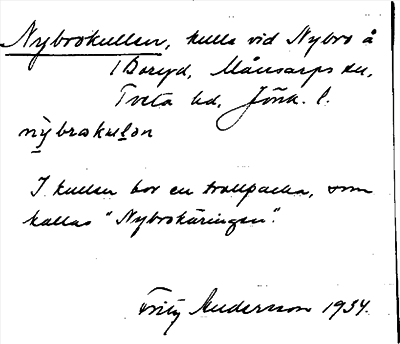 Nybrokullen, kulle vid Nybro å
i Boeryd, Månsarps sn,
Tveta hd, Jönk. l.
nỳbrokulən
I kullen bor en trollpacka, som
kallas "Nybrokäringen".
Fritz Andersson 1934.